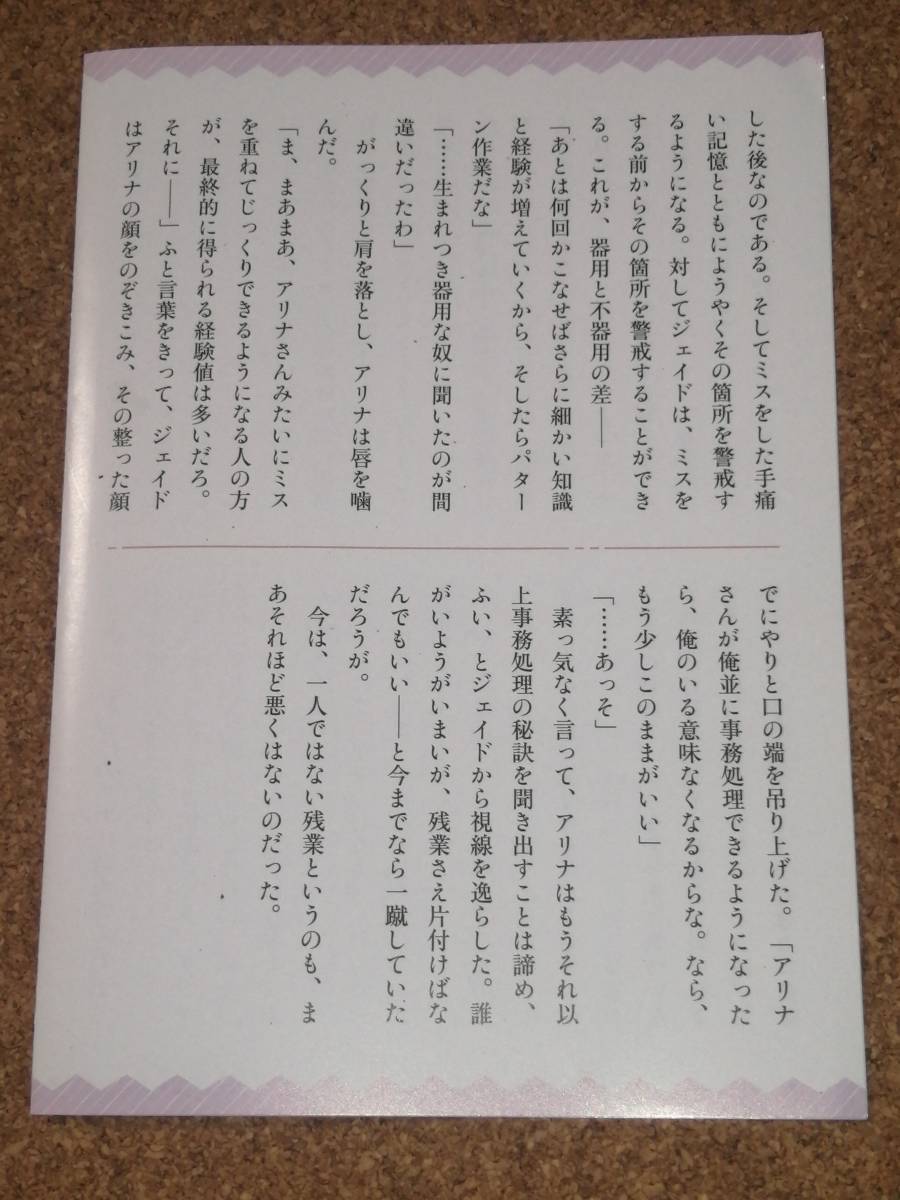 した後なのである。そしてミスをした手痛
い記憶とともにようやくその箇所を警戒す
るようになる。対してジェイドは、ミスを
する前からその箇所を警戒することができ
る。これが、器用と不器用の差――
「あとは何回かこなせばさらに細かい知識
と経験が増えていくから、そしたらパター
ン作業だな」
「……生まれつき器用な奴に聞いたのが間
違いだったわ」
がっくりと肩を落とし、アリナは唇を噛
んだ。
「ま、まあまあ、アリナさんみたいにミス
を重ねてじっくりできるようになる人の方
が、最終的に得られる経験値は多いだろ。
それに――」ふと言葉をきって、ジェイド
はアリナの顔をのぞきこみ、その整った顔
でにやりと口の端を吊り上げた。「アリナ
さんが俺並に事務処理できるようになった
ら、俺のいる意味なくなるからな。なら、
もう少しこのままがいい」
「……あっそ」
素っ気なく言って、アリナはもうそれ以
上事務処理の秘訣を聞き出すことは諦め、
ふい、とジェイドから視線を逸らした。誰
がいようがいまいが、残業さえ片付けばな
んでもいい――と今までなら一蹴していた
だろうが。
今は、一人ではない残業というのも、ま
あそれほど悪くはないのだった。